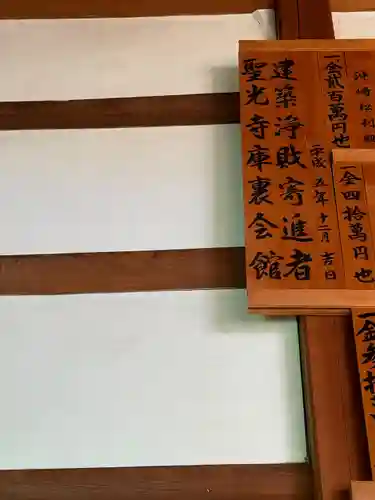 聖光寺庫裏会館
建築浄財寄進者
平成五年十二月吉日
一金貳百萬円也
一金四拾萬円也